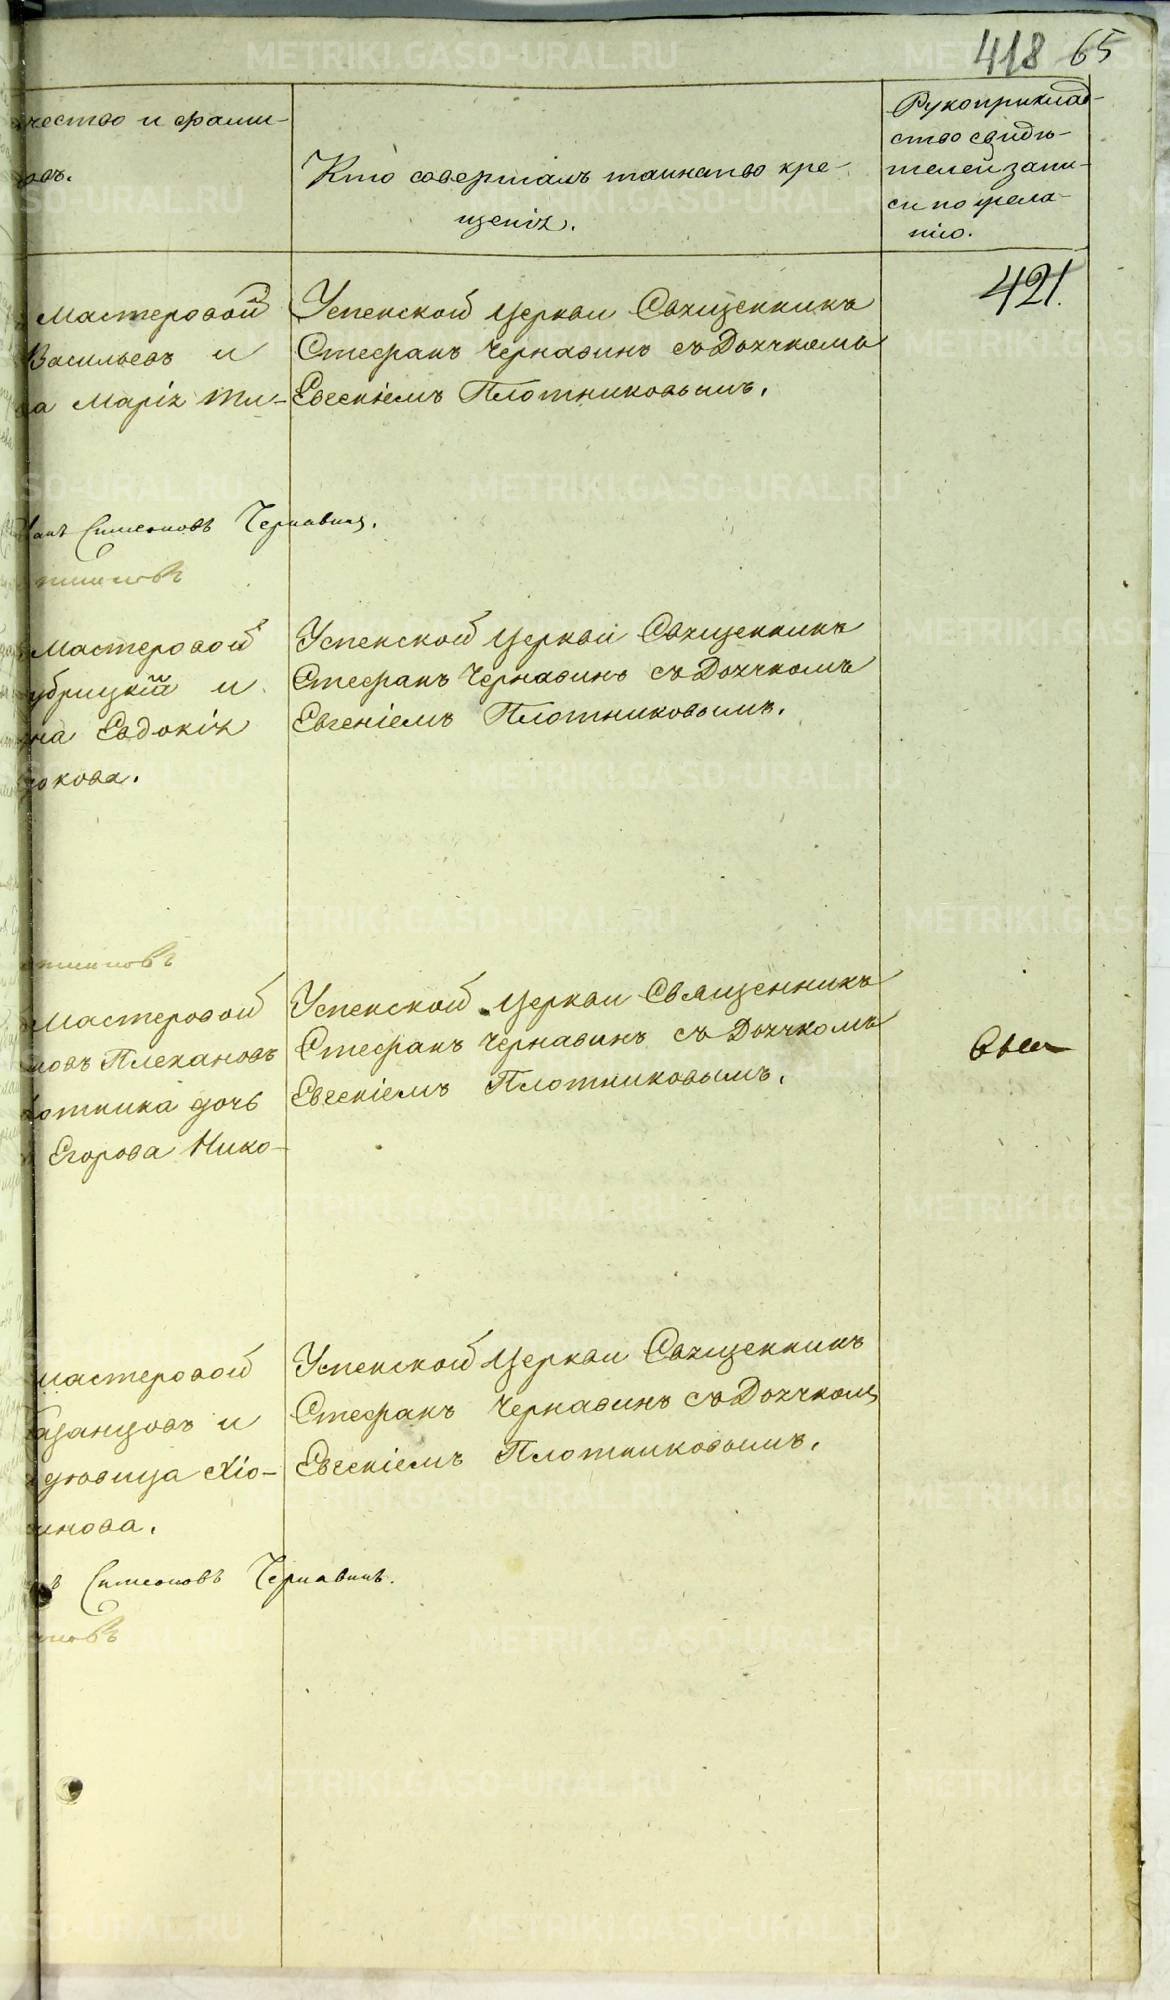 418 65
чество и фами-
овъ.
Кто совершалъ таинство кре-
щенія.
Рукоприклад-
ство свидѣ-
телей запи-
си по жела-
нію.
421.
Мастеровой
Васильевъ и
ва Марія Ти-
Успенской церкви Священникъ
Стефанъ Чернавинъ съ Дьячкомъ
Евгеніемъ Плотниковымъ.
Симеоновъ Чернавинъ.
Мастеровой
убрицкій и
на Евдокія
окова.
Успенской церкви Священникъ
Стефанъ Чернавинъ съ Дьячкомъ
Евгеніемъ Плотниковымъ.
Мастеровой
новъ Плехановъ
отника дочь
Егорова Нико-
Успенской церкви Священникъ
Стефанъ Чернавинъ съ Дьячкомъ
Евгеніемъ Плотниковымъ.
мастеровой
азанцовъ и
довица Хіо-
инова.
Успенской церкви Священникъ
Стефанъ Чернавинъ съ Дьячкомъ
Евгеніемъ Плотниковымъ.
Симеоновъ Чернавинъ.
METRIKI.GASO-URAL.RU